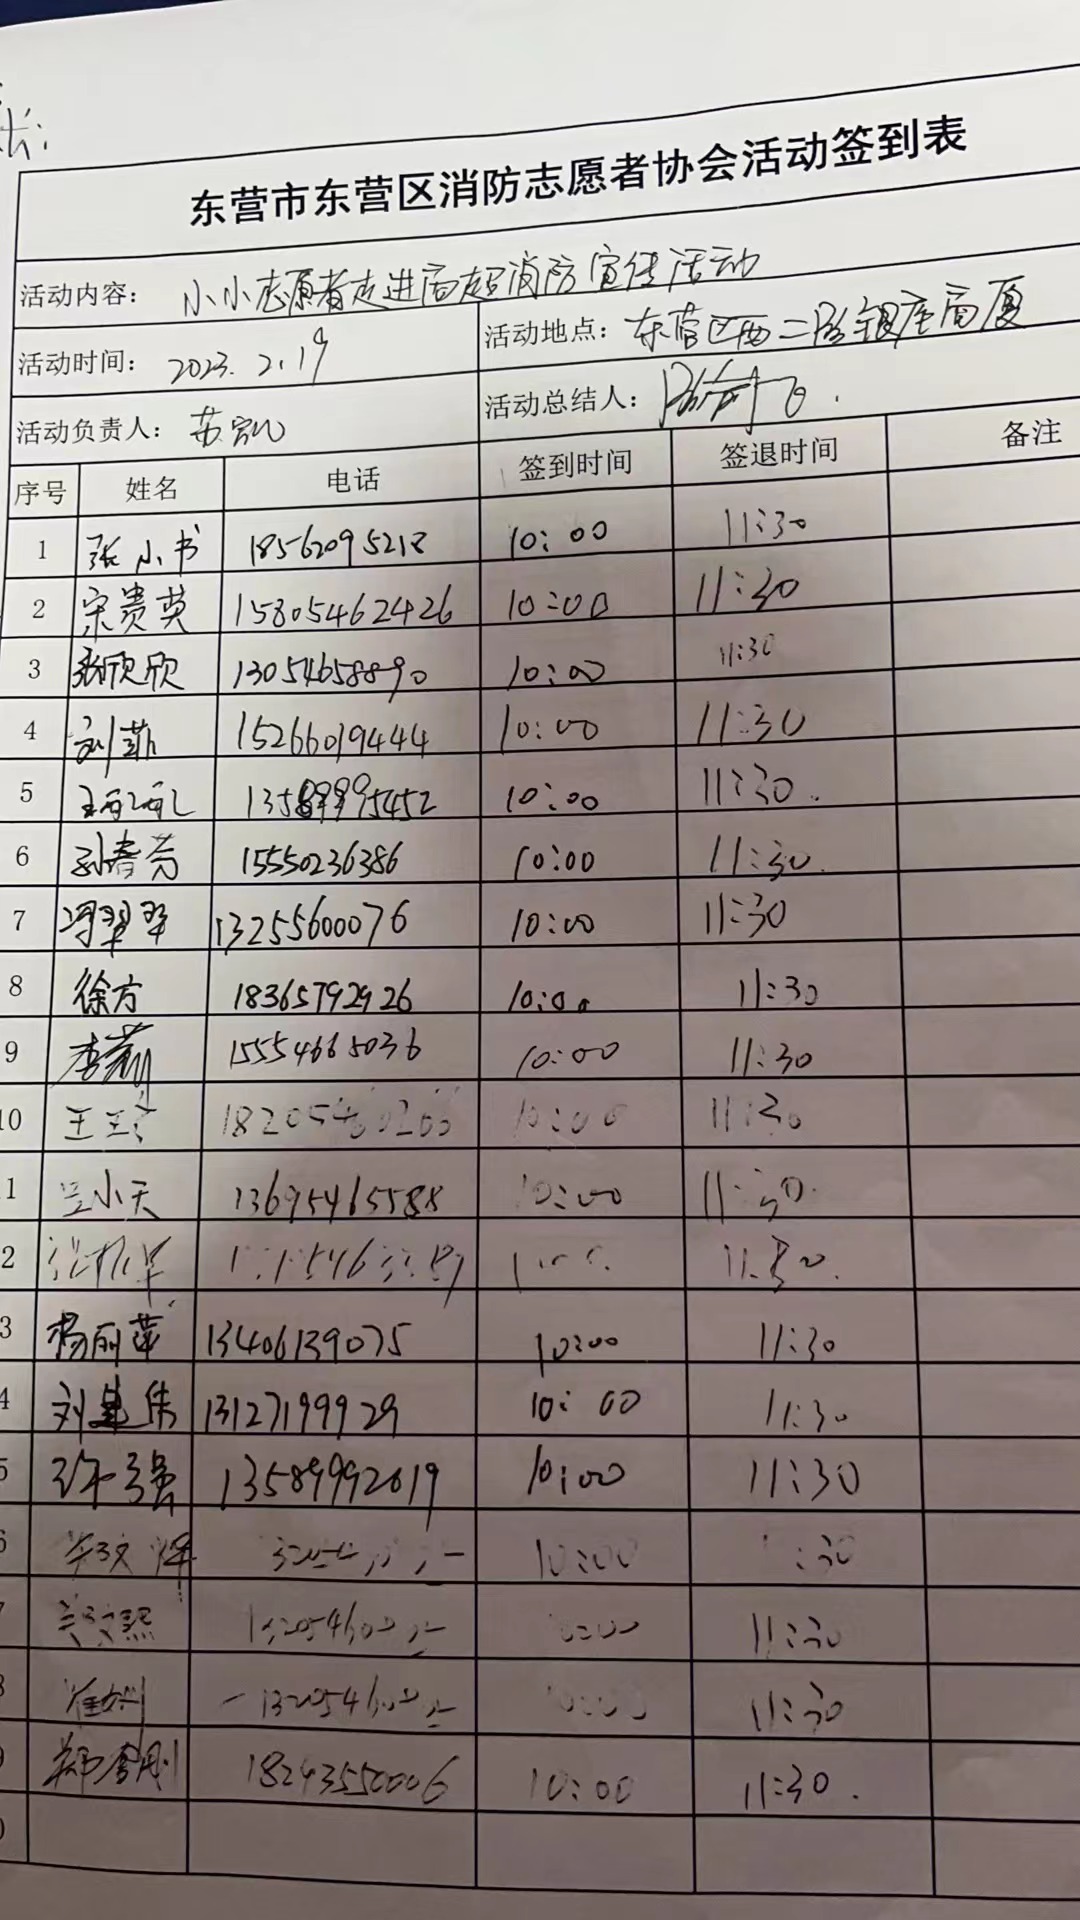 长:
东营市东营区消防志愿者协会活动签到表
活动内容: 小小志愿者走进商超消防宣传活动
活动时间: 2023.2.19 活动地点: 东营区西二路银座商厦
活动负责人: 苏凯 活动总结人:
序号 姓名 电话 签到时间 签退时间 备注
1 张小书 18562095218 10:00 11:30
2 宋贵英 15805462426 10:00 11:30
3 张欣欣 13054658890 10:00 11:30
4 刘菲 15266019444 10:00 11:30
5 王丽丽 10:00 11:30.
6 孙春芳 15550236386 10:00 11:30.
7 冯翠翠 13255600076 10:00 11:30
8 徐方 18365792926 10:00 11:30
9 李莉 15554665036 10:00 11:30
10 王 10:00 11:30
1 小天 13695465588 10:00 11:30.
2 11:30.
3 杨丽萍 13406139075 10:00 11:30
4 刘建伟 13127199929 10:00 11:30
5 许强 13589992619 10:00 11:30
6 10:00 :30
7 11:30
8 11:30
9 郑 刚 18243550006 10:00 11:30.
0